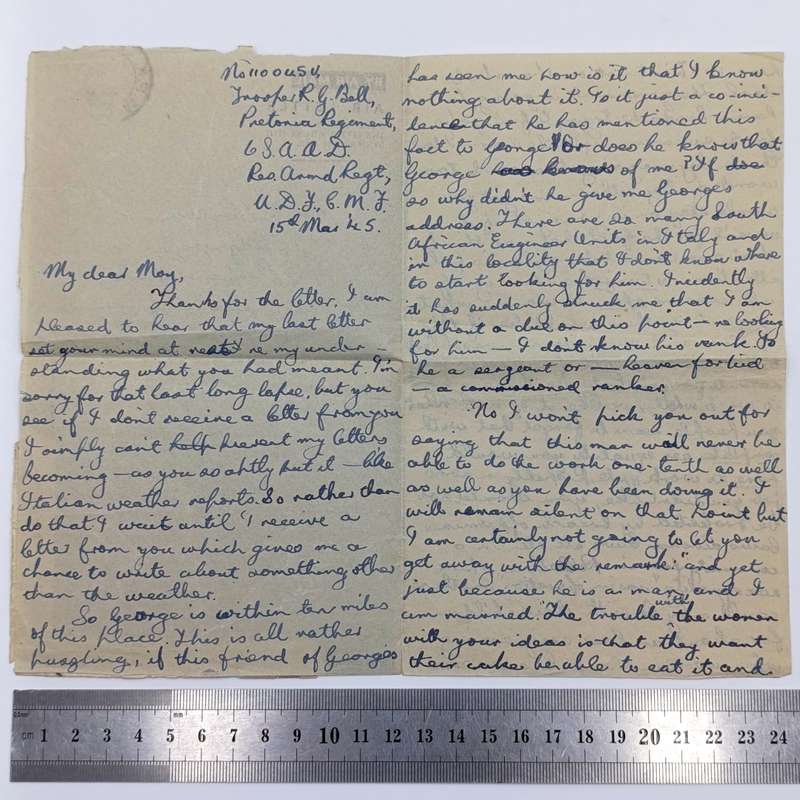 No 110045 V,
Trooper R. G. Bell,
Pretoria Regiment,
6 S. A. A. D.
Rec. Armd Regt,
U. D. F., C. M. F.
15th Mar 45.
My dear May,
Thanks for the letter. I am
pleased to hear that my last letter
set your mind at rest re my under-
standing what you had meant. I'm
sorry for that last long lapse, but you
see if I don't receive a letter from you
I simply can't help prevent my letters
becoming — as you so aptly put it — like
Italian weather reports. So rather than
do that I wait until I receive a
letter from you which gives me a
chance to write about something other
than the weather.
So George is within ten miles
of this place. This is all rather
puzzling, if this friend of Georges
has seen me how is it that I know
nothing about it. Is it just a co-inci-
dence that he has mentioned this
fact to George? Or does he know that
George of me? If does
so why didn't he give me Georges
address. There are so many South
African Engineer Units in Italy and
in this locality that I don't know where
to start looking for him. Incidently
it has suddenly struck me that I am
without a clue on this point — re looking
for him — I don't know his rank. Is
he a sergeant or — heaven forbid
— a commosioned ranker.
No I won't pick you out for
saying that this man will never be
able to do the work one-tenth as well
as well as you have been doing it. I
will remain silent on that point but
I am certainly not going to let you
get away with the remark: "and yet
just because he is a man and I
am married." The trouble with the women
with your ideas is that they want
their cake be able to eat it and
cm 1 2 3 4 5 6 7 8 9 10 11 12 13 14 15 16 17 18 19 20 21 22 23 24
0.5mm
mm